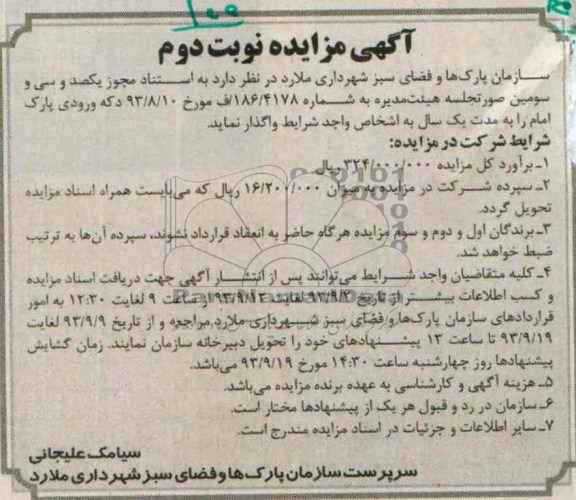 ۱۰۰
آگهی مزایده نوبت دوم
سازمان پارک‌ها و فضای سبز شهرداری ملارد در نظر دارد به استناد مجوز یکصد و سی و
سومین صورتجلسه هیئت‌مدیره به شماره ۱۸۶/۴۱۷۸/ف مورخ ۹۳/۸/۱۰ دکه ورودی پارک
امام را به مدت یک سال به اشخاص واجد شرایط واگذار نماید.
شرایط شرکت در مزایده:
۱ـ برآورد کل مزایده ۳۲۴/۰۰۰/۰۰۰ ریال
۲ـ سپرده شرکت در مزایده به میزان ۱۶/۲۰۰/۰۰۰ ریال که می‌بایست همراه اسناد مزایده
تحویل گردد.
۳ـ برندگان اول و دوم و سوم مزایده هرگاه حاضر به انعقاد قرارداد نشوند، سپرده آن‌ها به ترتیب
ضبط خواهد شد.
۴ـ کلیه متقاضیان واجد شرایط می‌توانند پس از انتشار آگهی جهت دریافت اسناد مزایده
و کسب اطلاعات بیشتر از تاریخ ۹۳/۹/۲ لغایت ۹۳/۹/۱۲ از ساعت ۹ لغایت ۱۲:۳۰ به امور
قراردادهای سازمان پارک‌ها و فضای سبز شهرداری ملارد مراجعه و از تاریخ ۹۳/۹/۹ لغایت
۹۳/۹/۱۹ تا ساعت ۱۳ پیشنهادهای خود را تحویل دبیرخانه سازمان نمایند. زمان گشایش
پیشنهادها روز چهارشنبه ساعت ۱۴:۳۰ مورخ ۹۳/۹/۱۹ می‌باشد.
۵ـ هزینه آگهی و کارشناسی به عهده برنده مزایده می‌باشد.
۶ـ سازمان در رد و قبول هر یک از پیشنهادها مختار است.
۷ـ سایر اطلاعات و جزئیات در اسناد مزایده مندرج است.
سیامک علیجانی
سرپرست سازمان پارک‌ها و فضای سبز شهرداری ملارد